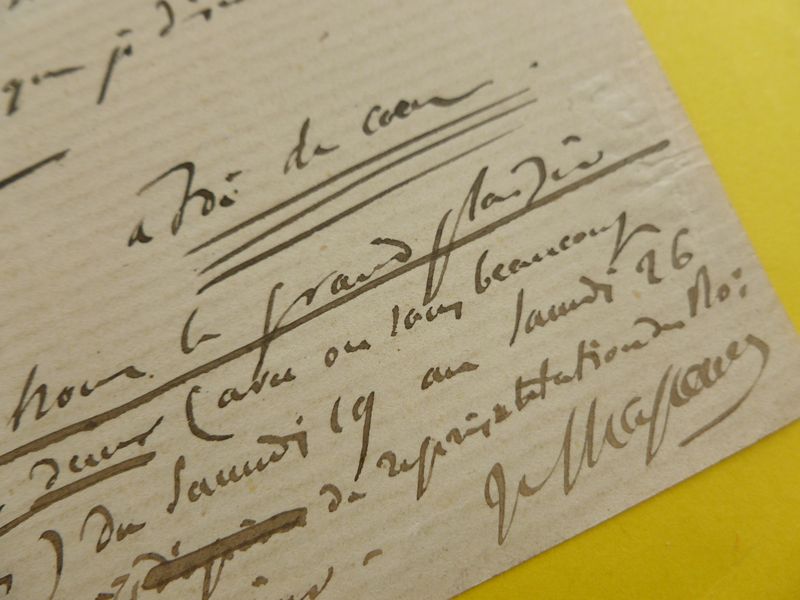 que je d
à toi de cœur.
nous le grand plaisir
deux (avec ou sans beaucoup
) du Samedi 19 au Samedi 26
de représentation du Roi
J. Massenet